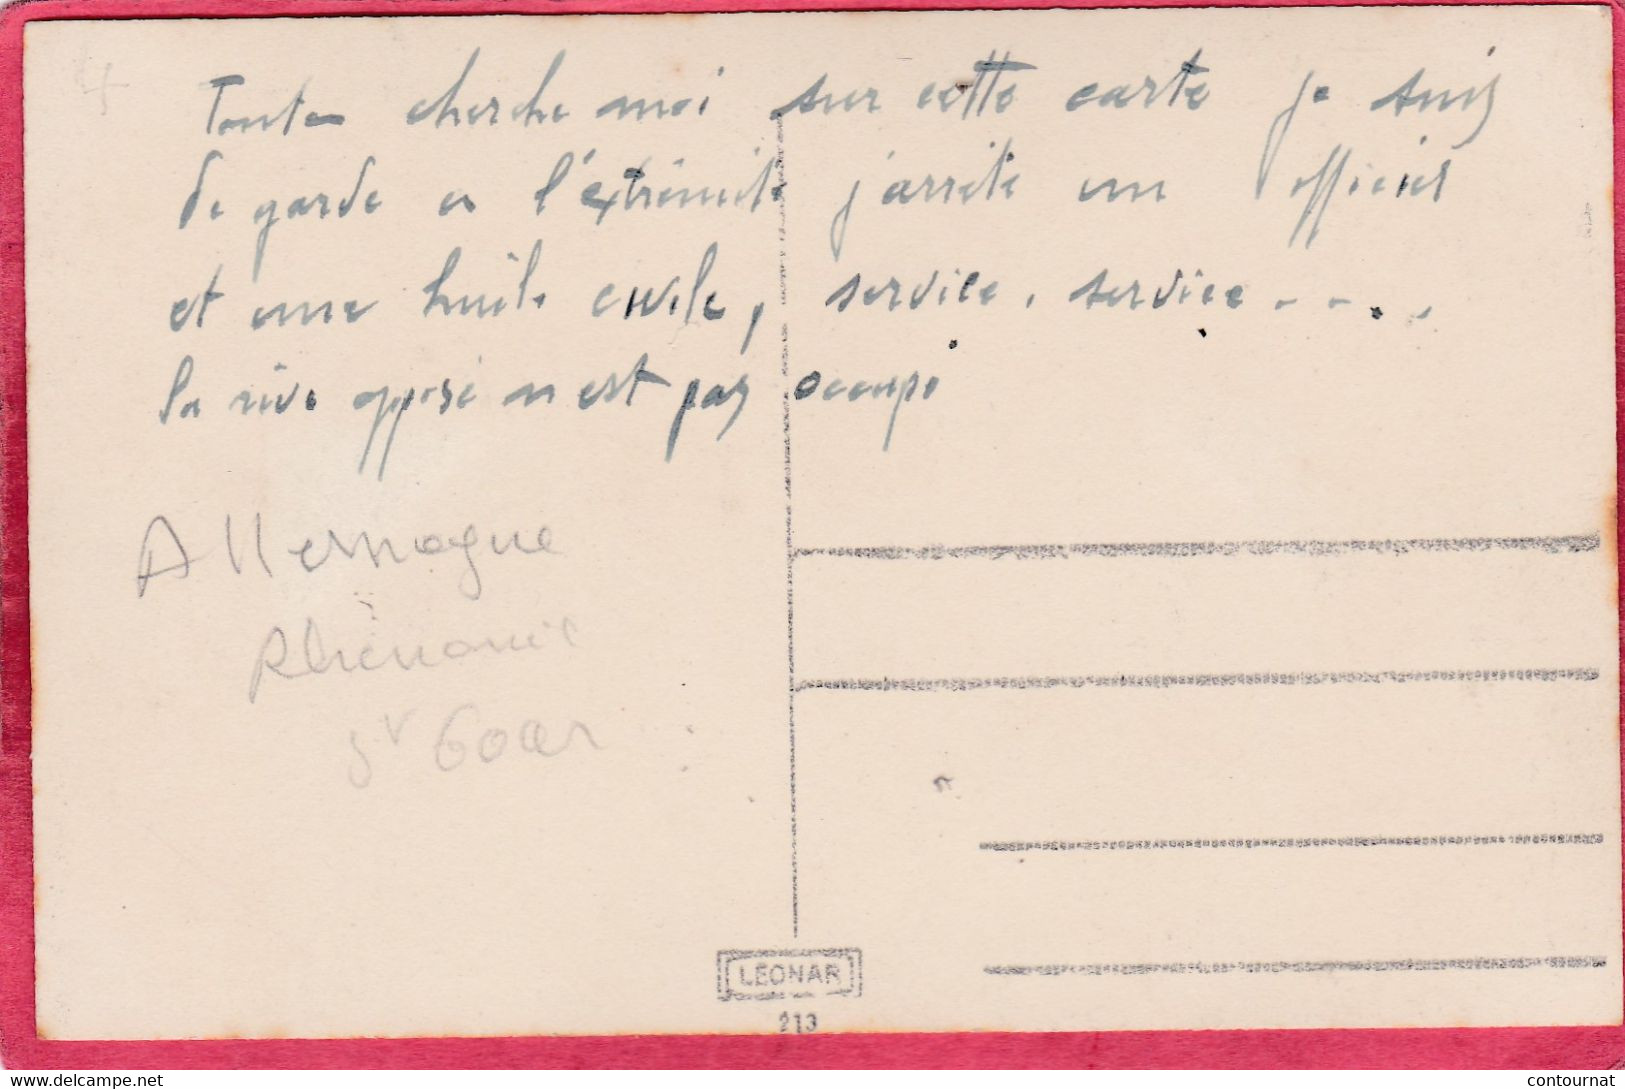 cherche moi sur cette carte je suis
de garde a l'éxtrémité j'arrête un officier
et une huile civile, service, service - - . .
la rive opposé n est pas occupé
Allemagne
Rhénanie
St Goar
LEONAR
213
www.delcampe.net
contournat